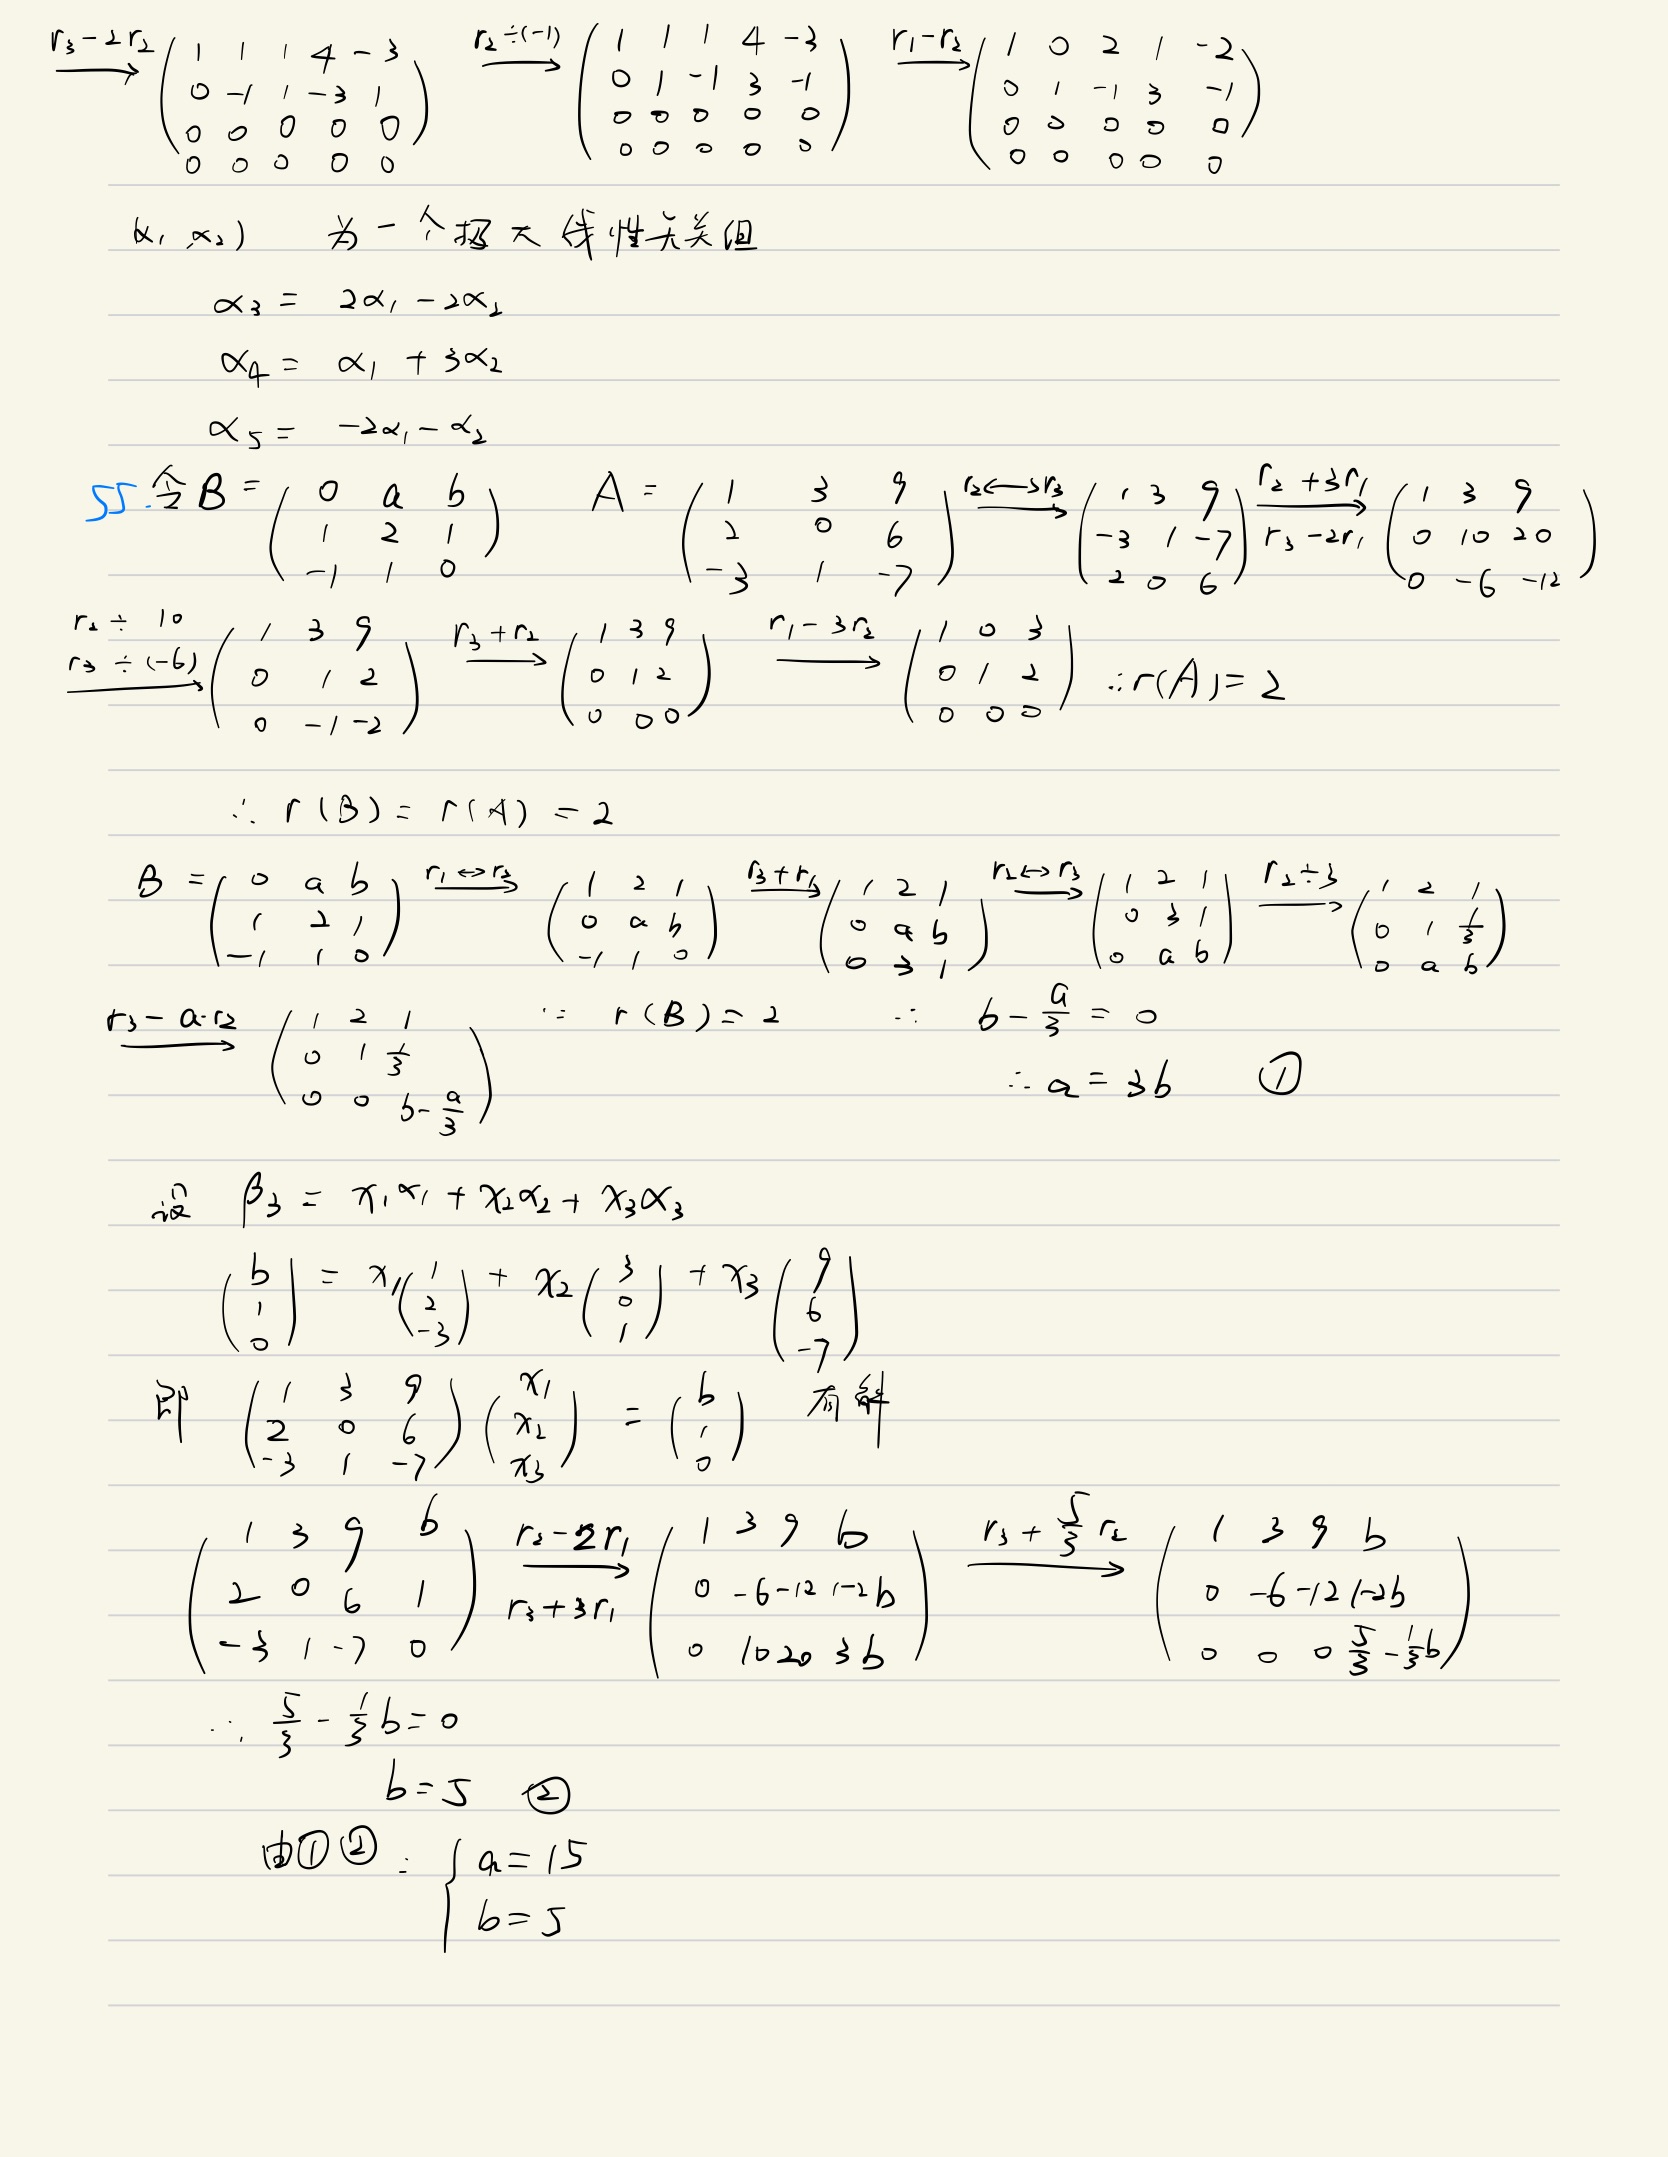 r₃-2r₂ → (1 1 1 4 -3; 0 -1 1 -3 1; 0 0 0 0 0; 0 0 0 0 0) r₂÷(-1) → (1 1 1 4 -3; 0 1 -1 3 -1; 0 0 0 0 0; 0 0 0 0 0) r₁-r₂ → (1 0 2 1 -2; 0 1 -1 3 -1; 0 0 0 0 0; 0 0 0 0 0)
(α₁, α₂) 为一个极大线性无关组
α₃ = 2α₁ - 2α₂
α₄ = α₁ + 3α₂
α₅ = -2α₁ - α₂
55. 令 B = (0 a b; 1 2 1; -1 1 0) A = (1 3 9; 2 0 6; -3 1 -7) r₂↔r₃ → (1 3 9; -3 1 -7; 2 0 6) r₂+3r₁ r₃-2r₁ → (1 3 9; 0 10 20; 0 -6 -12)
r₂÷10 r₃÷(-6) → (1 3 9; 0 1 2; 0 -1 -2) r₃+r₂ → (1 3 9; 0 1 2; 0 0 0) r₁-3r₂ → (1 0 3; 0 1 2; 0 0 0) ∴ r(A) = 2
∴ r(B) = r(A) = 2
B = (0 a b; 1 2 1; -1 1 0) r₁↔r₂ → (1 2 1; 0 a b; -1 1 0) r₃+r₁ → (1 2 1; 0 a b; 0 3 1) r₂↔r₃ → (1 2 1; 0 3 1; 0 a b) r₂÷3 → (1 2 1; 0 1 1/3; 0 a b)
r₃-a·r₂ → (1 2 1; 0 1 1/3; 0 0 b-a/3) ∵ r(B) = 2 ∴ b - a/3 = 0
∴ a = 3b ①
设 β₃ = x₁α₁ + x₂α₂ + x₃α₃
(b; 1; 0) = x₁(1; 2; -3) + x₂(3; 0; 1) + x₃(9; 6; -7)
即 (1 3 9; 2 0 6; -3 1 -7)(x₁; x₂; x₃) = (b; 1; 0) 有解
(1 3 9 b; 2 0 6 1; -3 1 -7 0) r₂-2r₁ r₃+3r₁ → (1 3 9 b; 0 -6 -12 1-2b; 0 10 20 3b) r₃+5/3 r₂ → (1 3 9 b; 0 -6 -12 1-2b; 0 0 0 5/3-1/3b)
∴ 5/3 - 1/3 b = 0
b = 5 ②
由①②: { a = 15
b = 5